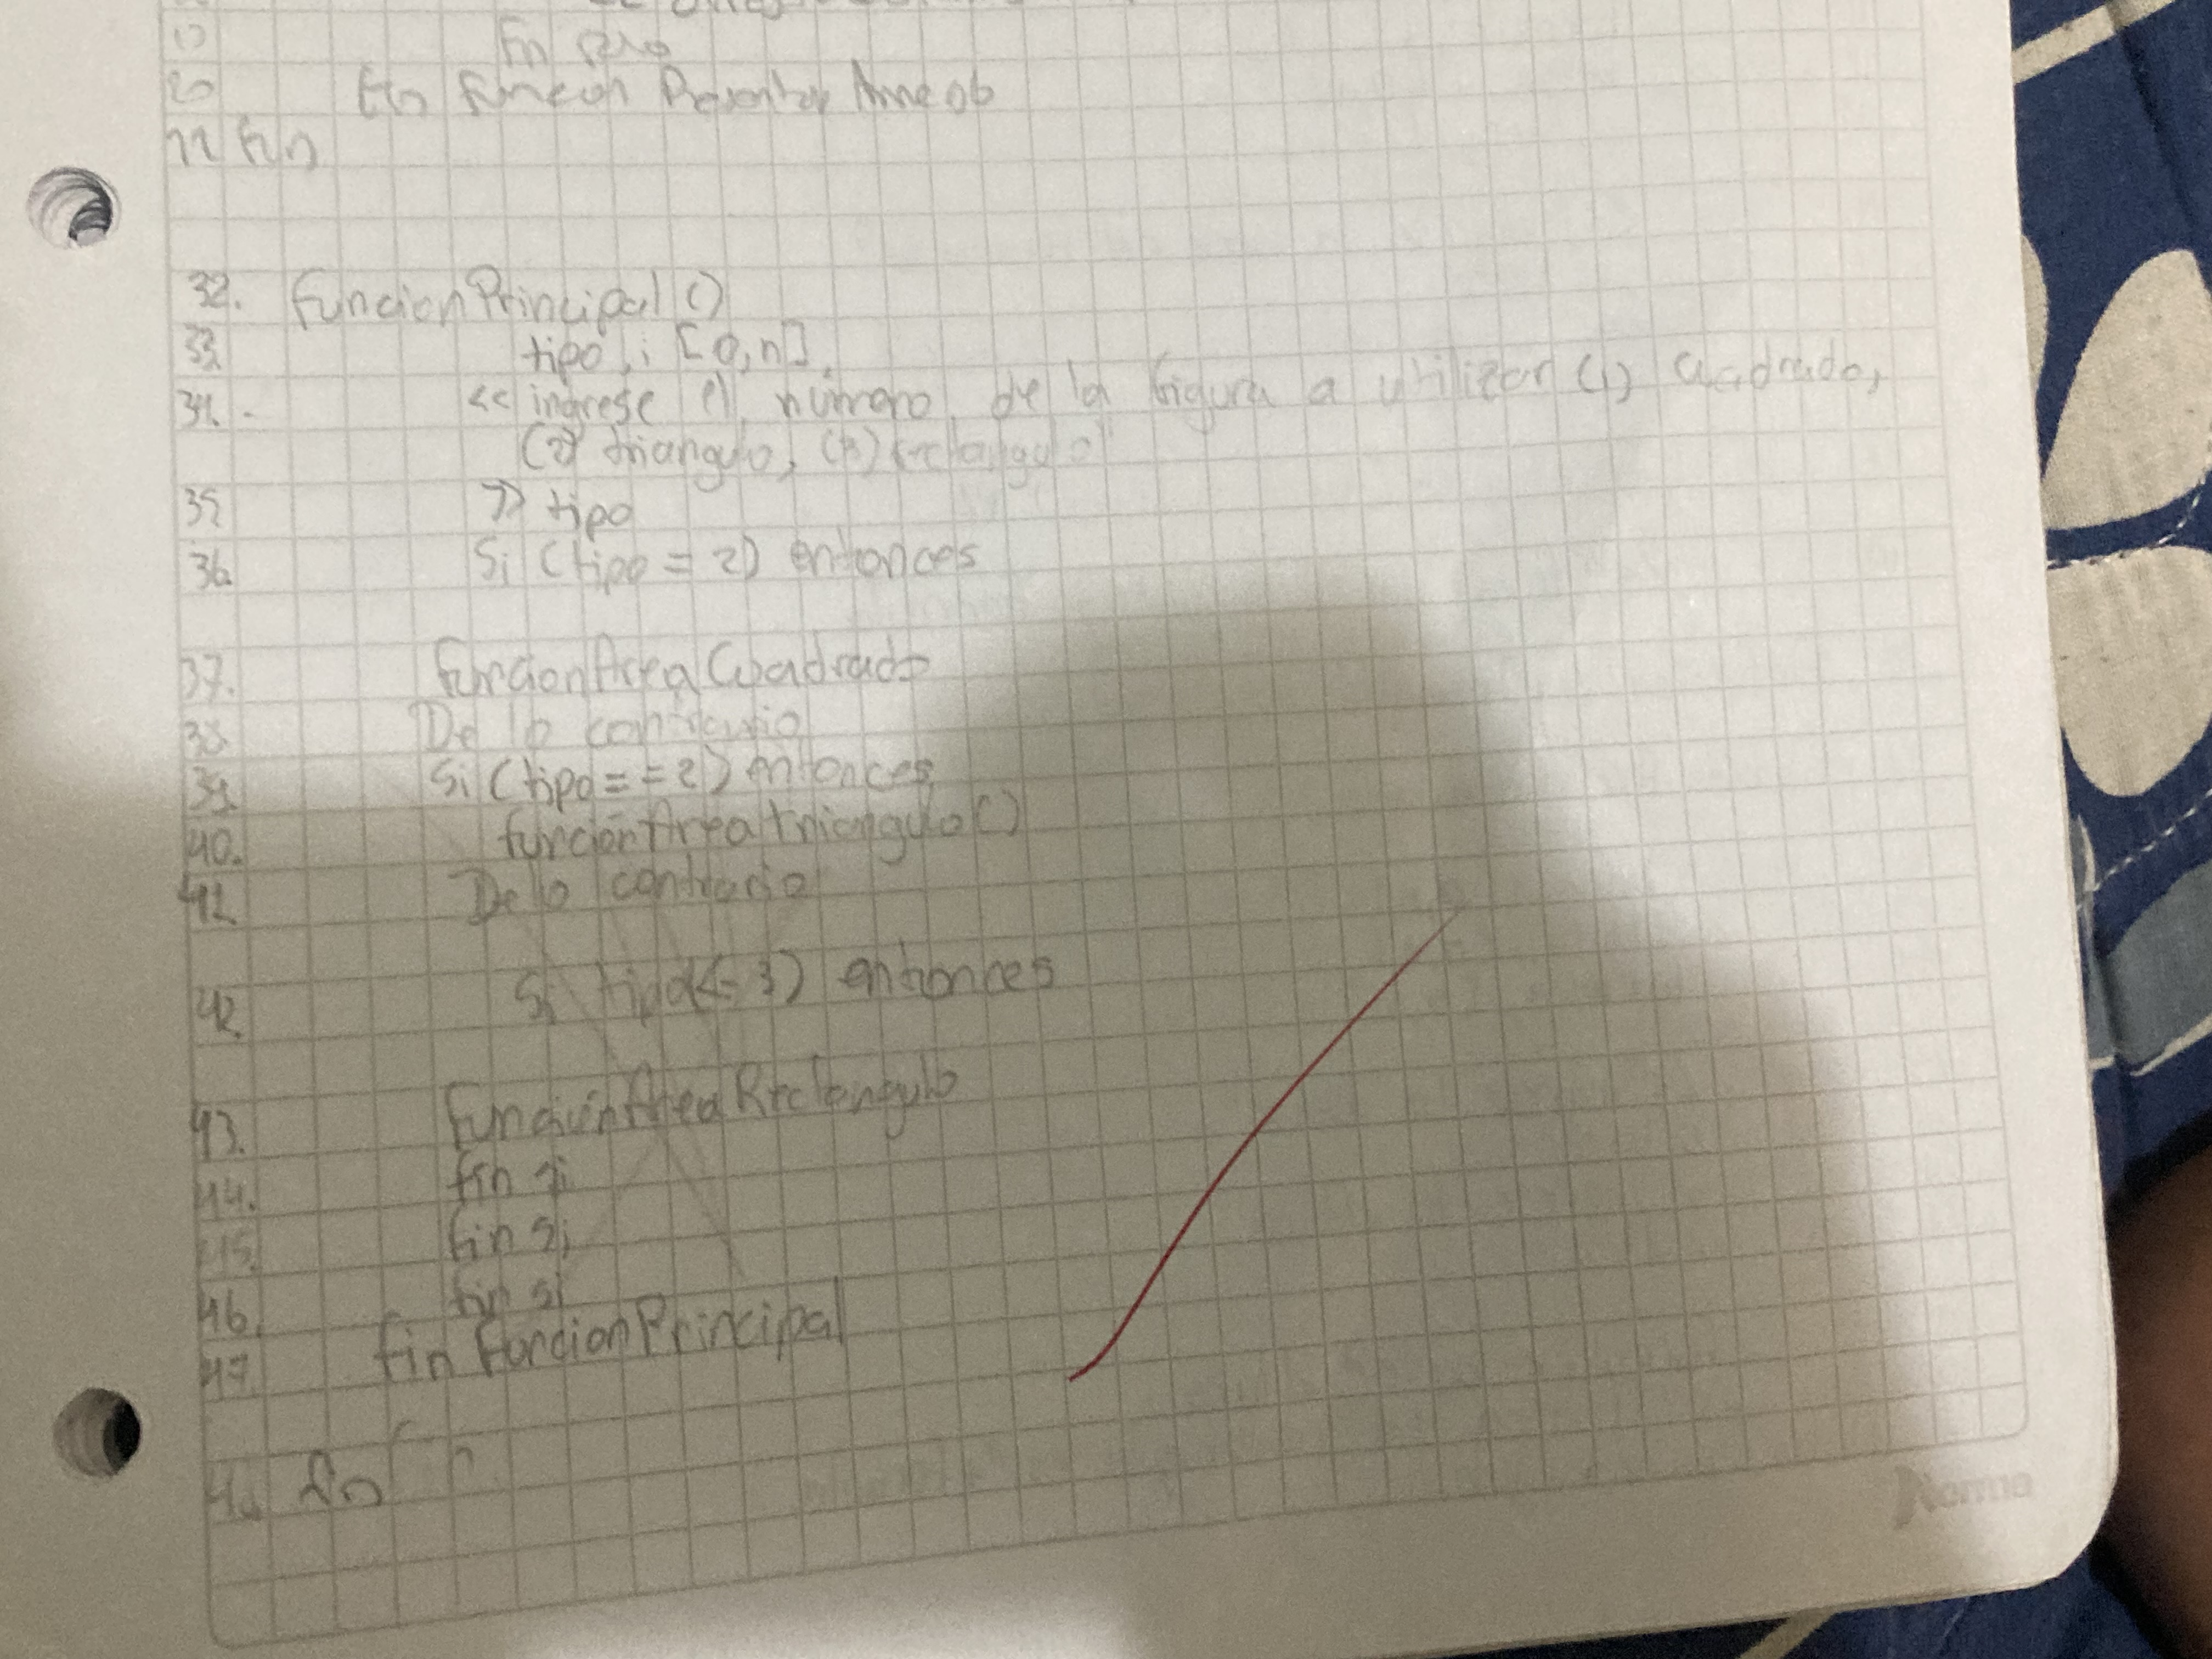 19 Fin para
20 Fin funcion
21 fin
32. funcionPrincipal()
33 tipo, i [0,n]
34. << ingrese el número de la figura a utilizar (1) cuadrado,
(2) triangulo, (3) rectangulo"
35 >> tipo
36 Si (tipo = 2) entonces
37. funcionAreaCuadrado
38 De lo contrario
39 Si (tipo == 2) entonces
40. funcionAreatriangulo()
41. De lo contrario
42. Si tipo(= 3) entonces
43. funcionAreaRectangulo
44. fin si
45. fin si
46. fin si
47. fin FuncionPrincipal
fin